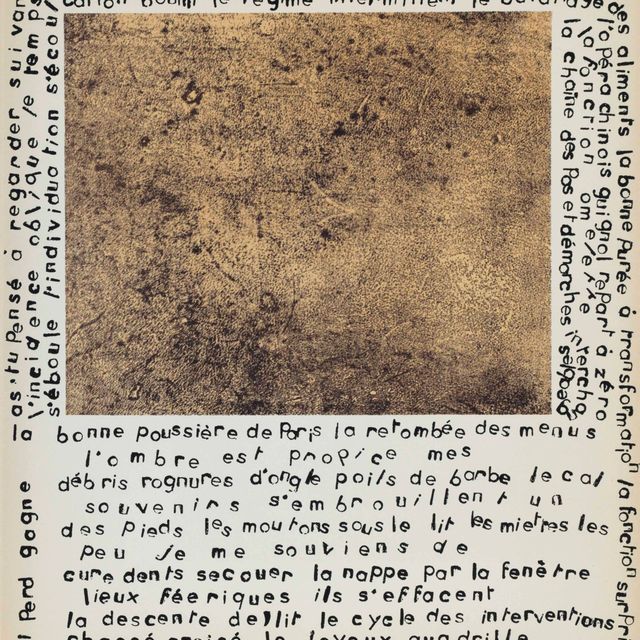 bonne poussière de Paris la retombée des menus
l'ombre est propice mes
débris rognures d'ongle poils de barbe le cal
souvenirs s'embrouillent un
des pieds les moutons sous le lit les miettes les
peu je me souviens de
cure dents secouer la nappe par la fenêtre
lieux féeriques ils s'effacent
la descente de lit le cycle des interventions
le joyeux quadrille
perd gagne
as-tu pensé à regarder suivan
à l'incidence oblique le temps
s'éboule l'individuation s'écou
le régime intermittent le
des aliments la bonne purée à transformation la fonction surpr
l'opéra chinois guignol repart à zéro
la fonction
la chaîne des pas et démarches